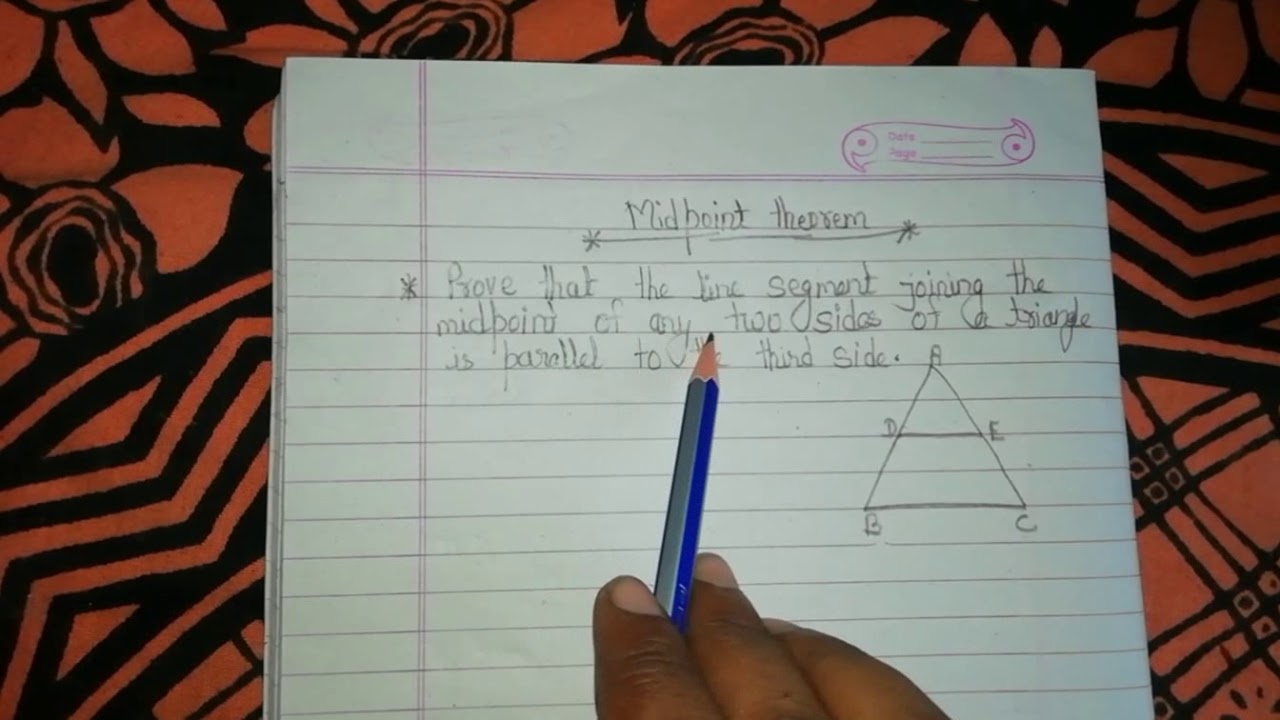 Date
Page
Midpoint theorem
* Prove that the line segment joining the
midpoint of any two sides of a triangle
is parallel to the third side.
A
D E
B C